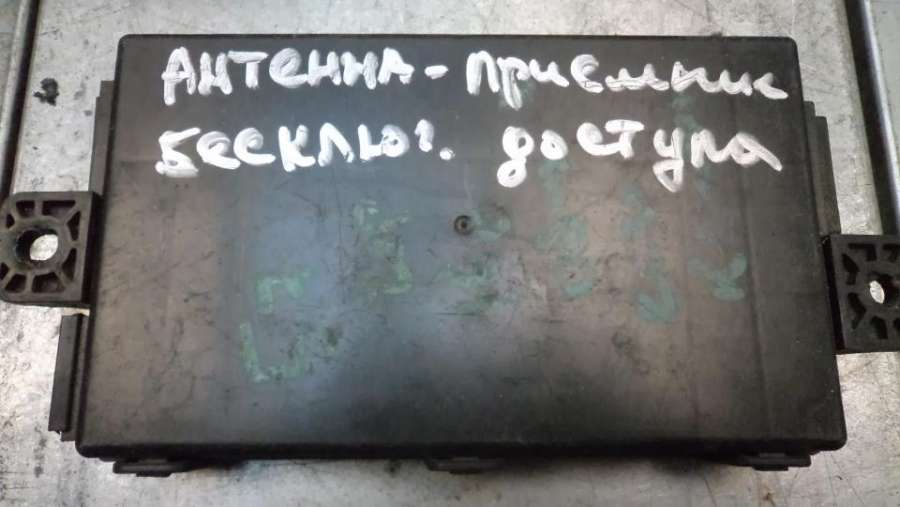 Антенна - приемник
бесключ. доступа